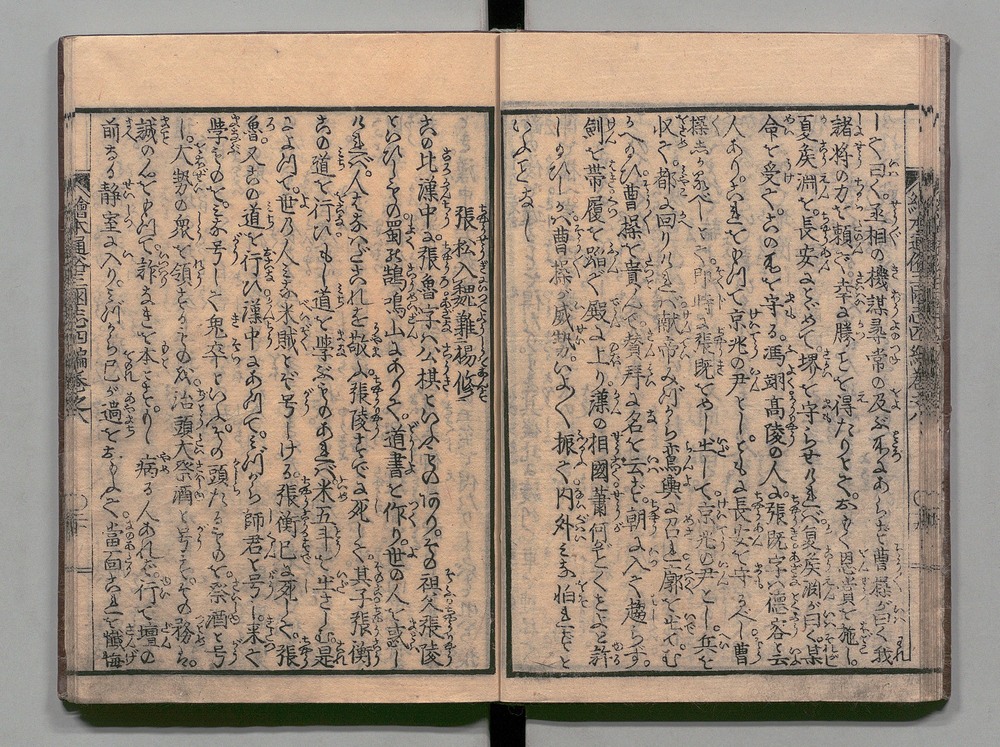 して曰く。丞相の機謀尋常の及ぶ所にあらず曹操が曰く我
諸将の力を頼で。幸に勝ことを得たりとて。おもく恩賞を施し。
夏侯淵を。長安にとどめて。堺を守らせければ。夏侯淵が曰く。某
命を受て。この地を守る。馮翊高陵の人に。張既字ハ徳容と云
人あり。これをもつて。京兆の尹とし。ともに長安を守るべし曹
操その言を
都に回りければ。献帝みづから鸞輿に召れ。郭を出てむ
かへ給ひ曹操を貴んで。賛拝に名を云ず。朝に入て趨らず。
剣を帯履を踏で殿に上り。漢の相國蕭何がごとくせよと許
し給ひしかバ。曹操が威勢。いよく振て。内外みな怕れずと
いふことなし
張松入魏難楊修
この比漢中に。張魯字ハ公棋といふもの有り。その祖父張陵
といひしもの。蜀の鵠鳴山にありて。道書を作り。世の人を惑し
ければ。人もなはだこれを敬ふ。張陵すでに死して。其子張衡
この道を行ひ。もし道を學ぶものあれバ。米五斗を出さしむ是
によつて。世の人みな米賊とぞ号しける。張衡已に死して。張
魯又この道を行ひ漢中にあつて。みづから師君と号し。来て
學ものを。みな号して鬼卒といふ。その頭たるものを。祭酒と号
し。大勢の衆を領するものをバ。治頭大祭酒と号す。その務は。
誠のんをもつて。詐なきを本とせり。病る人あれバ。行て壇の
前なる静室に入り。みづから己が過をおもふて。當面これを懺悔
繪本通俗三國志四編巻之八